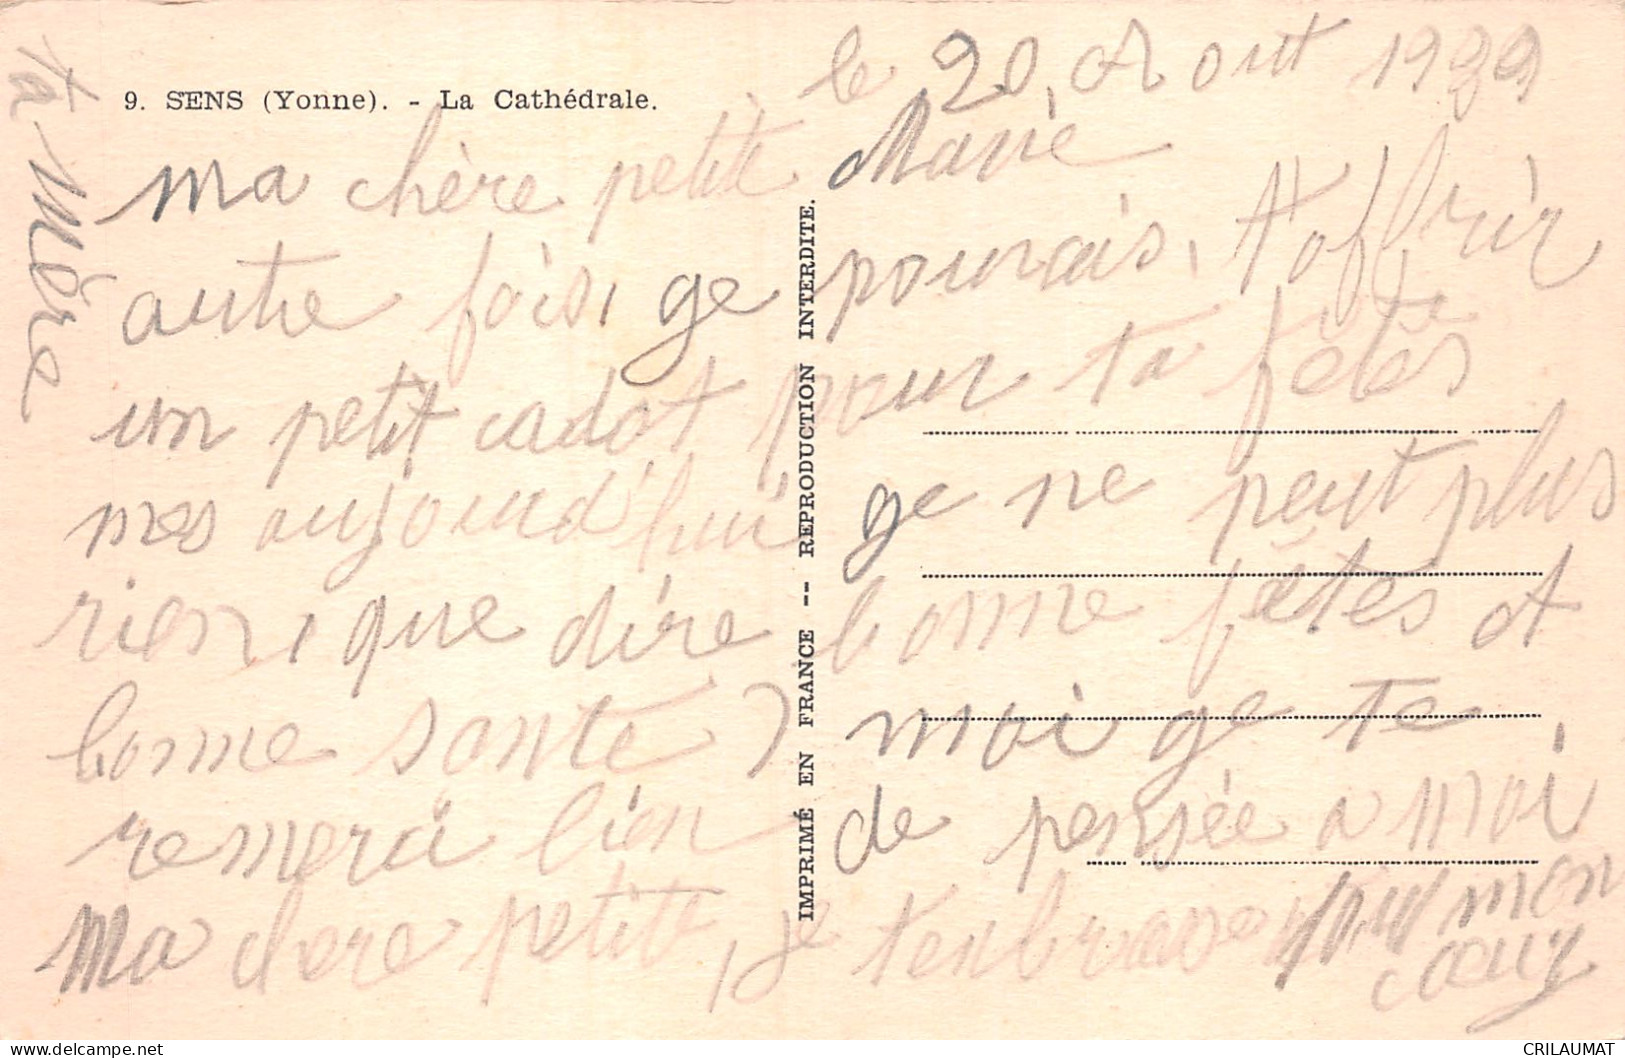 9. SENS (Yonne). - La Cathédrale.
le 20, Aout 1939
ma chère petite Marie
autre fois, ge pourais, t'offrir
un petit cadot pour ta fêtes
mes aujourd'hui ge ne peut plus
rien, que dire bonne fêtes et
bonne santé moi ge te
remerci bien de pensée a moi
Ma chere petite, je tenbrasse mon
cœur
ta Mère
IMPRIMÉ EN FRANCE -- REPRODUCTION INTERDITE.
delcampe.net
CRILAUMAT